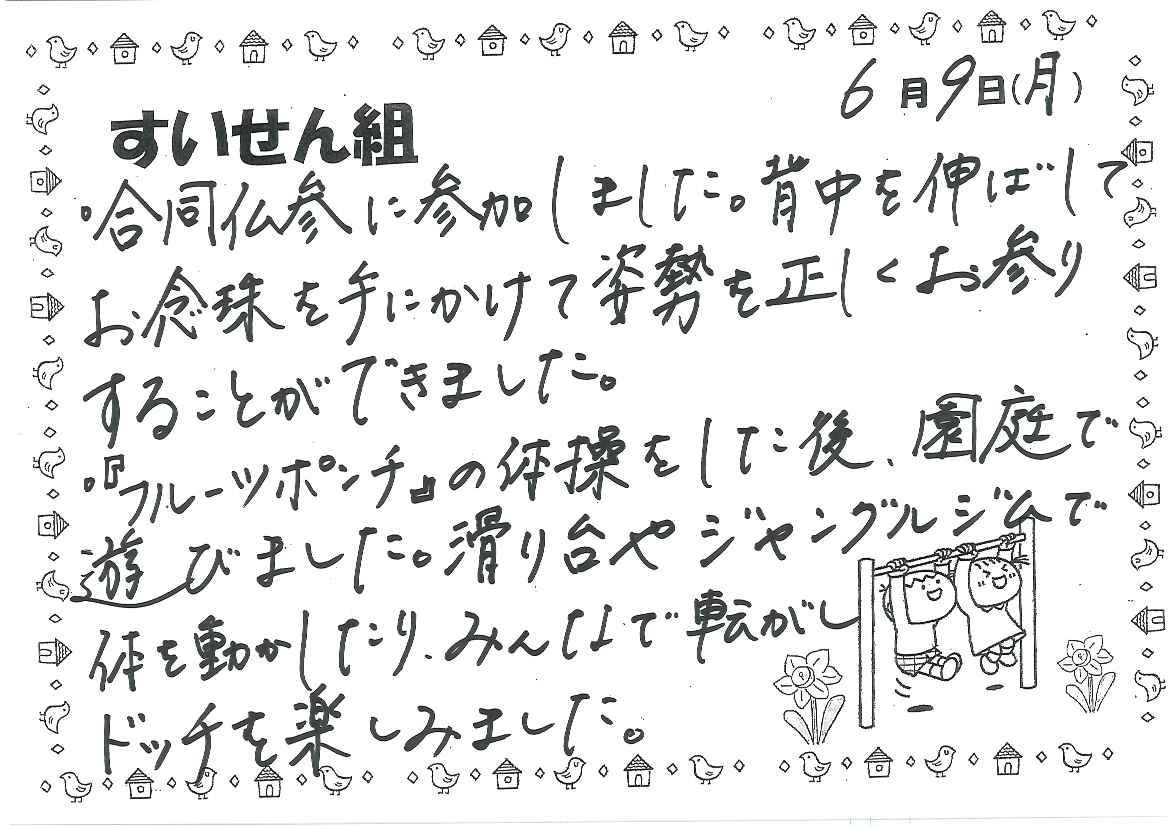 6月9日(月)
すいせん組
・合同仏参に参加しました。背中を伸ばして
お念珠を手にかけて姿勢を正しくお参り
することができました。
・『フルーツポンチ』の体操をした後、園庭で
遊びました。滑り台やジャングルジムで
体を動かしたり、みんなで転がし
ドッチを楽しみました。